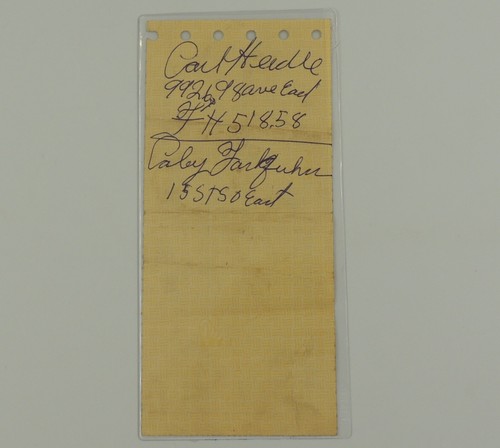 Carl Headle
992 69 8 ave East
FH 51858
Caley Farkquher
15 St 50 East